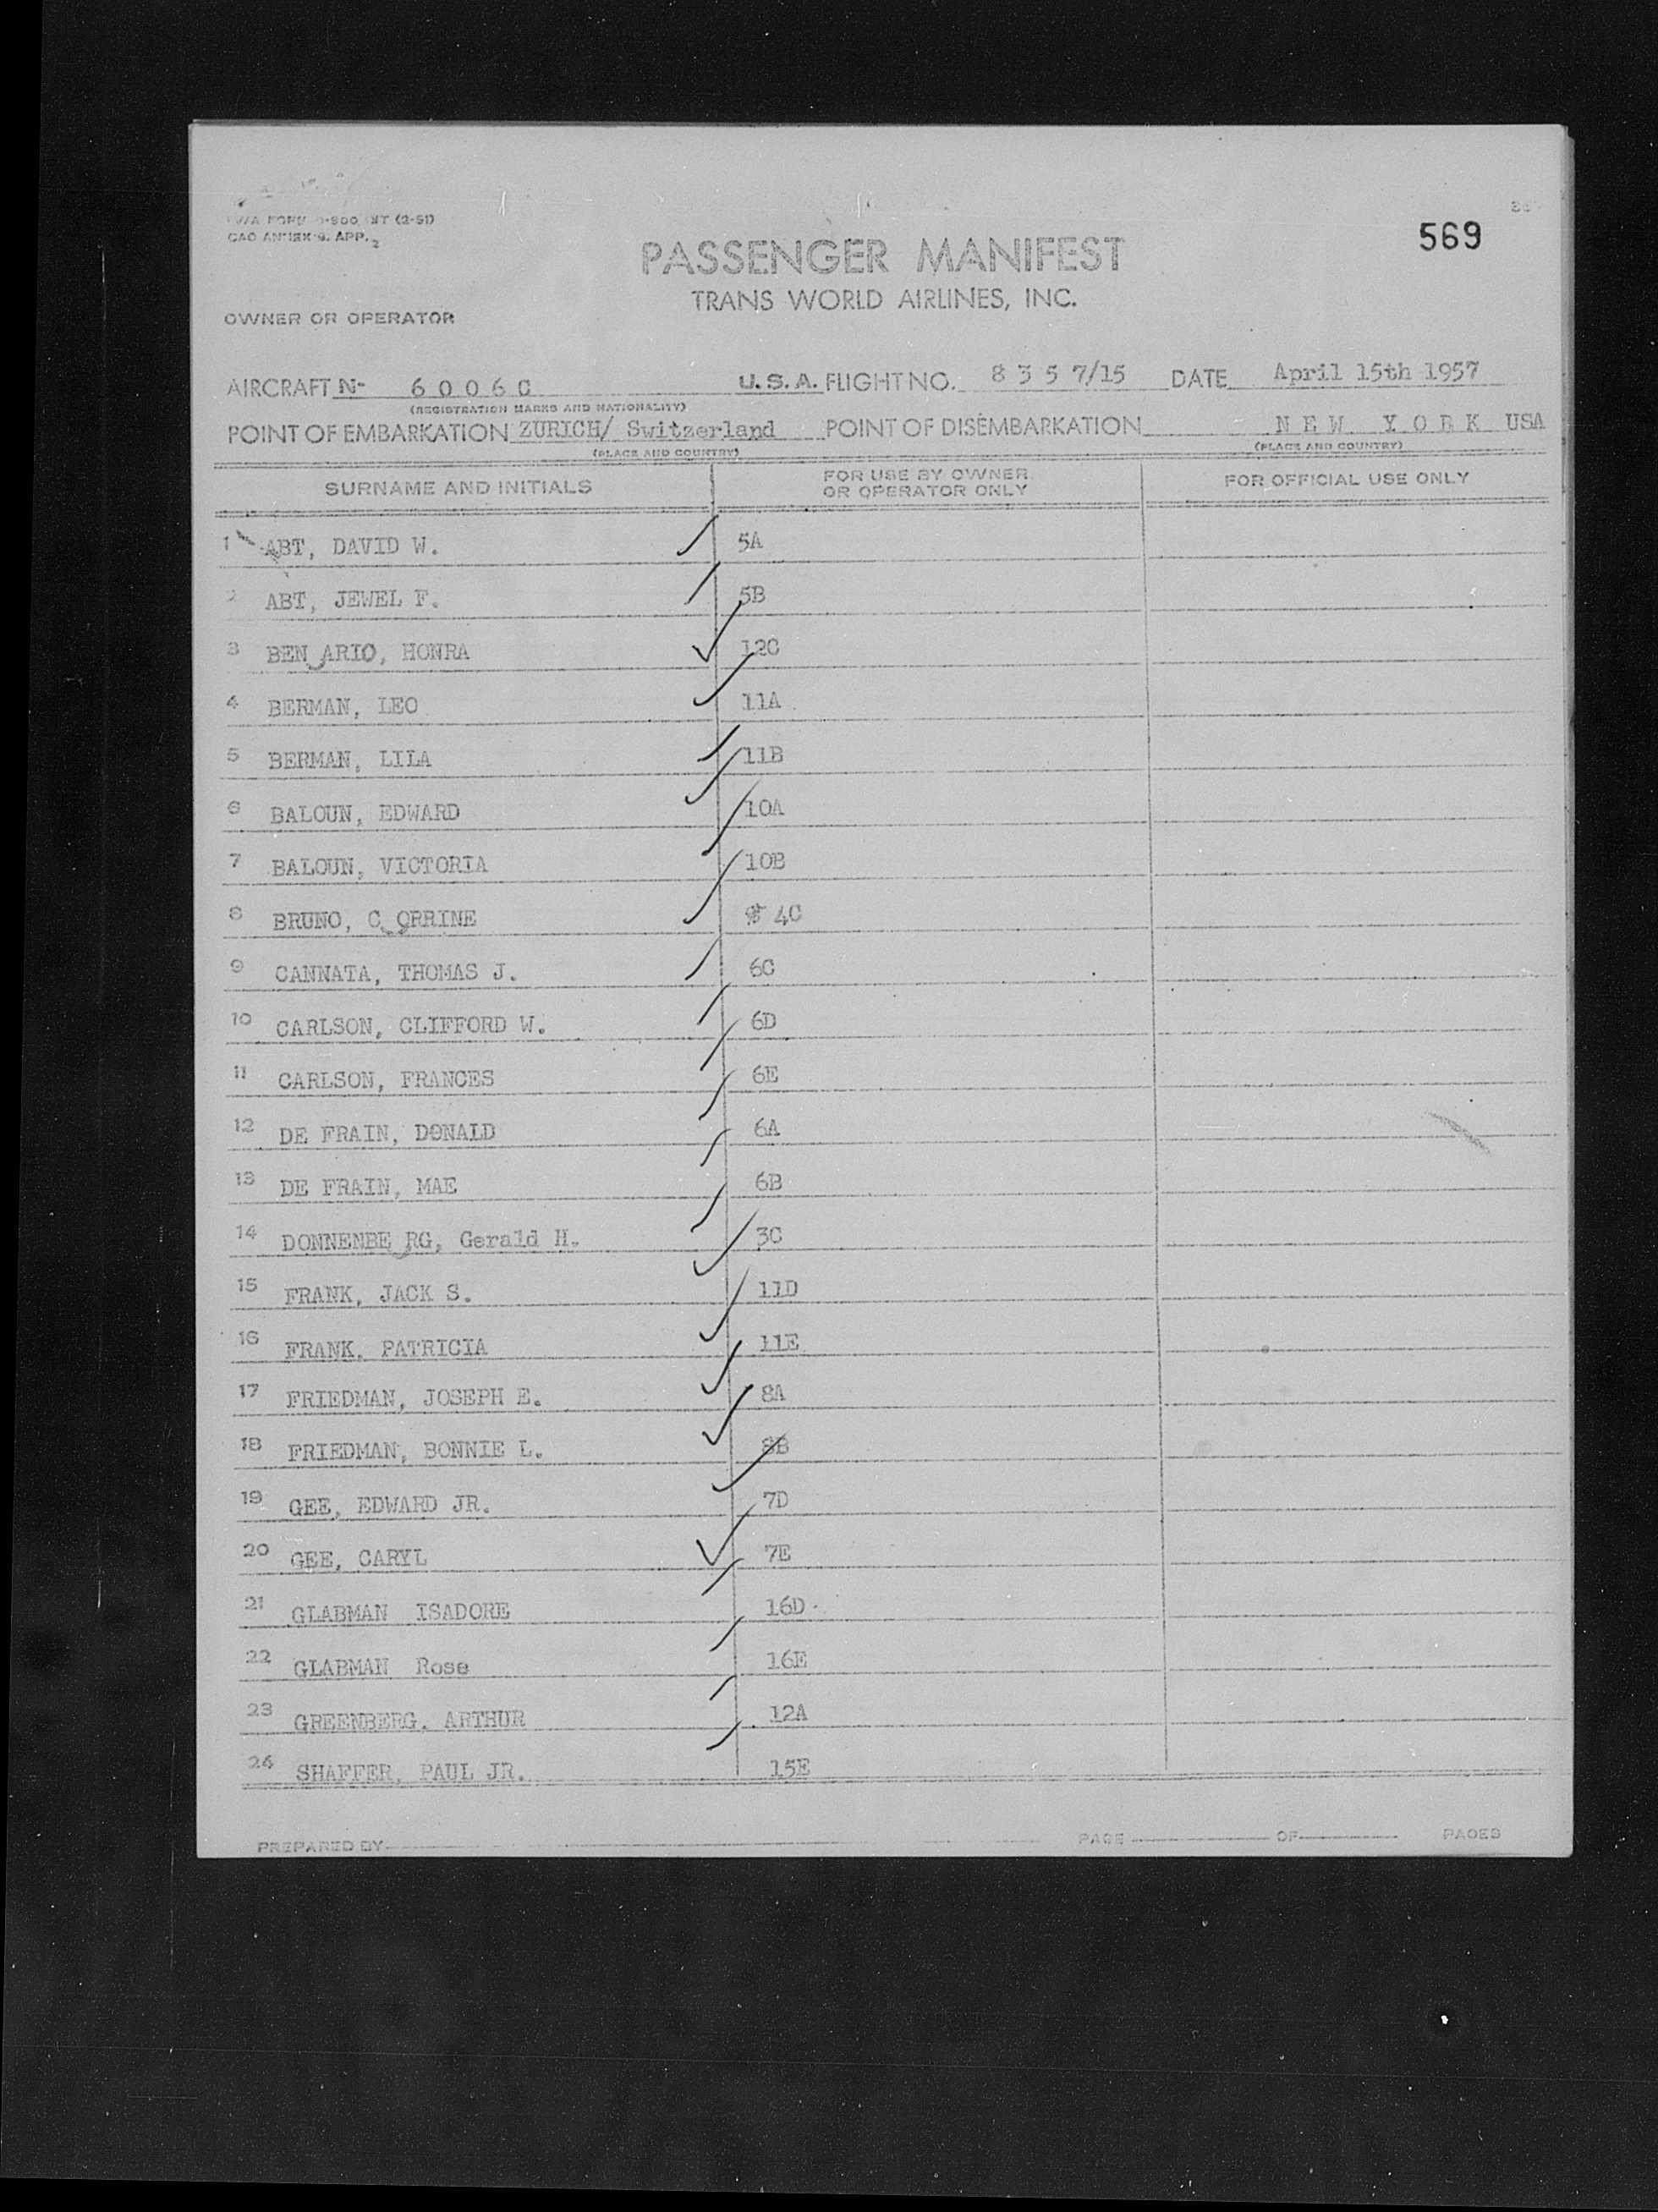 TWA FORM 0-800 INT (2-51)
ICAO ANNEX 9. APP. 2
569
PASSENGER MANIFEST
TRANS WORLD AIRLINES, INC.
OWNER OR OPERATOR
AIRCRAFT N- 6 0 0 6 C U.S.A. FLIGHT NO. 8 3 5 7/15 DATE April 15th 1957
(REGISTRATION MARKS AND NATIONALITY)
POINT OF EMBARKATION ZURICH/ Switzerland POINT OF DISEMBARKATION N E W Y O R K USA
(PLACE AND COUNTRY) (PLACE AND COUNTRY)
SURNAME AND INITIALS FOR USE BY OWNER OR OPERATOR ONLY FOR OFFICIAL USE ONLY
1 ABT, DAVID W. 5A
2 ABT, JEWEL F. 5B
3 BEN ARIO, HONRA 12C
4 BERMAN, LEO 11A
5 BERMAN, LILA 11B
6 BALOUN, EDWARD 10A
7 BALOUN, VICTORIA 10B
8 BRUNO, C ORRINE 4C
9 CANNATA, THOMAS J. 6C
10 CARLSON, CLIFFORD W. 6D
11 CARLSON, FRANCES 6E
12 DE FRAIN, DONALD 6A
13 DE FRAIN, MAE 6B
14 DONNENBE RG, Gerald H. 3C
15 FRANK, JACK S. 11D
16 FRANK, PATRICIA 11E
17 FRIEDMAN, JOSEPH E. 8A
18 FRIEDMAN, BONNIE L. 8B
19 GEE, EDWARD JR. 7D
20 GEE, CARYL 7E
21 GLABMAN ISADORE 16D
22 GLABMAN Rose 16E
23 GREENBERG, ARTHUR 12A
24 SHAFFER, PAUL JR. 15E
PREPARED BY PAGE OF PAGES